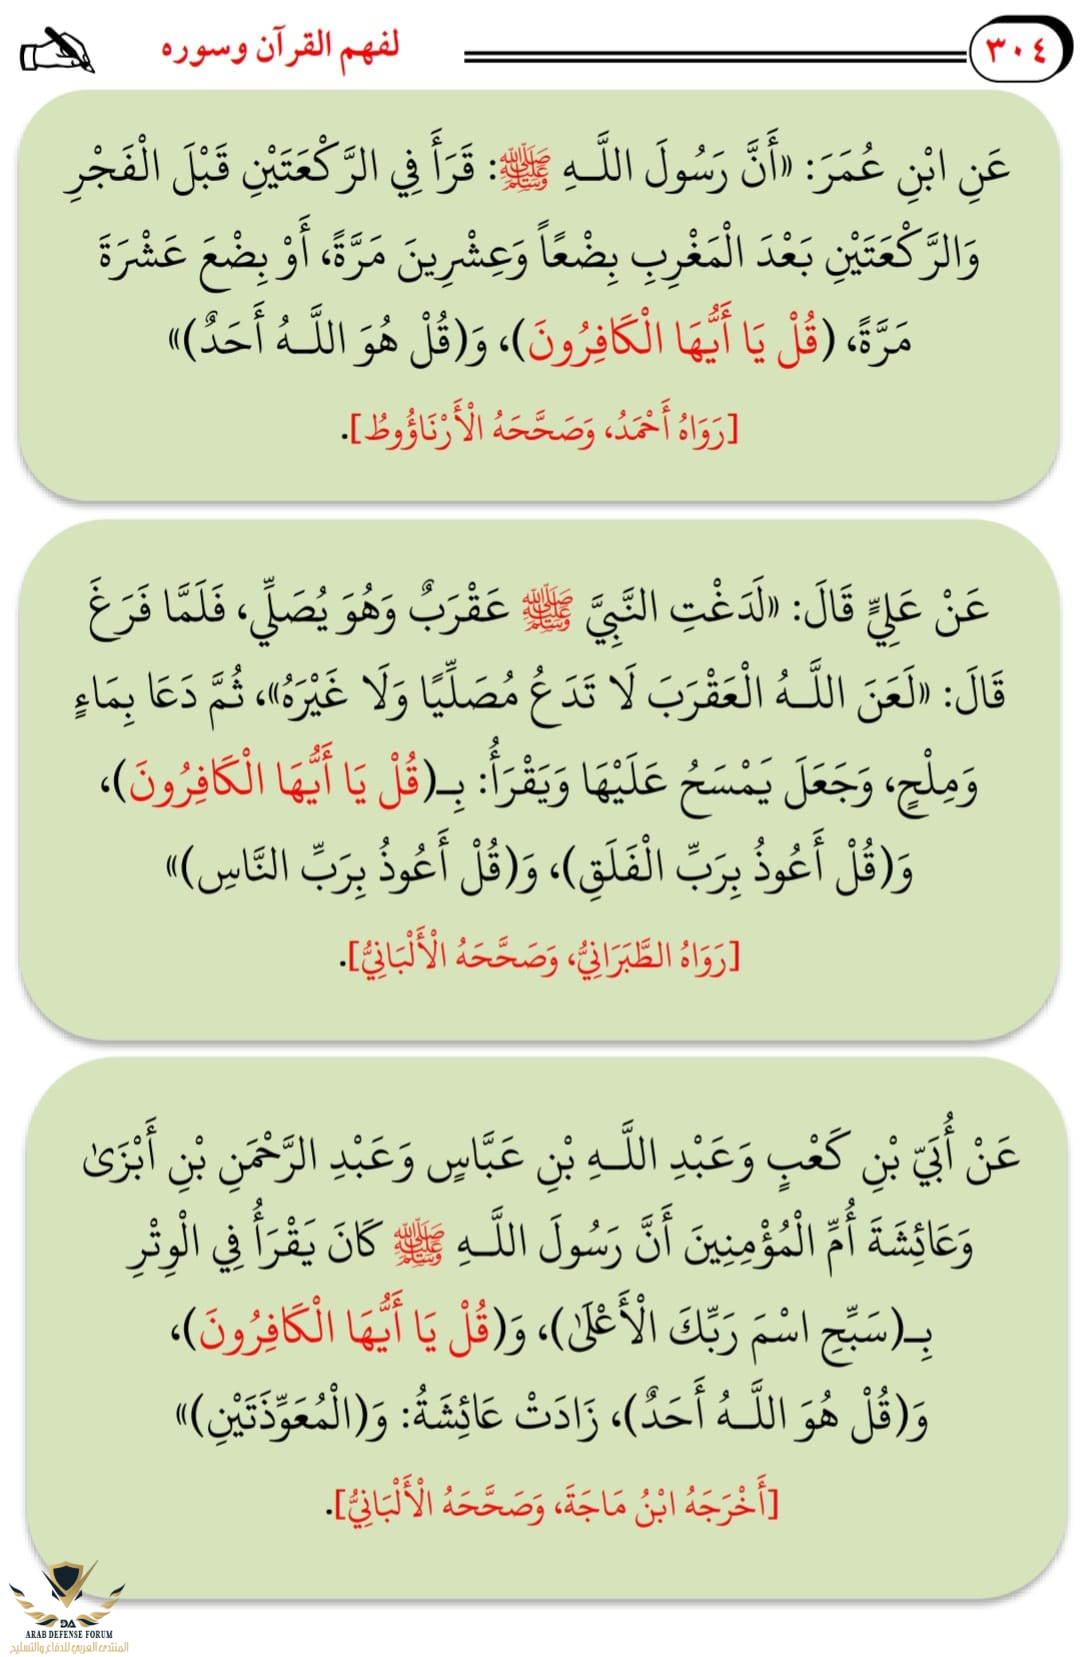 ٣٠٤
لفهم القرآن وسوره
عَنِ ابْنِ عُمَرَ: «أَنَّ رَسُولَ اللَّـهِ ﷺ: قَرَأَ فِي الرَّكْعَتَيْنِ قَبْلَ الْفَجْرِ
وَالرَّكْعَتَيْنِ بَعْدَ الْمَغْرِبِ بِضْعًا وَعِشْرِينَ مَرَّةً، أَوْ بِضْعَ عَشْرَةَ
مَرَّةً، (قُلْ يَا أَيُّهَا الْكَافِرُونَ)، وَ(قُلْ هُوَ اللَّـهُ أَحَدٌ)»
[رَوَاهُ أَحْمَدُ، وَصَحَّحَهُ الْأَرْنَاؤُوطُ].
عَنْ عَلِيٍّ قَالَ: «لَدَغْتِ النَّبِيَّ ﷺ عَقْرَبٌ وَهُوَ يُصَلِّي، فَلَمَّا فَرَغَ
قَالَ: «لَعَنَ اللَّـهُ الْعَقْرَبَ لَا تَدَعُ مُصَلِّيًا وَلَا غَيْرَهُ»، ثُمَّ دَعَا بِمَاءٍ
وَمِلْحٍ، وَجَعَلَ يَمْسَحُ عَلَيْهَا وَيَقْرَأُ: بِـ(قُلْ يَا أَيُّهَا الْكَافِرُونَ)،
وَ(قُلْ أَعُوذُ بِرَبِّ الْفَلَقِ)، وَ(قُلْ أَعُوذُ بِرَبِّ النَّاسِ)»
[رَوَاهُ الطَّبَرَانِيُّ، وَصَحَّحَهُ الْأَلْبَانِيُّ].
عَنْ أُبَيّ بْنِ كَعْبٍ وَعَبْدِ اللَّـهِ بْنِ عَبَّاسٍ وَعَبْدِ الرَّحْمَنِ بْنِ أَبْزَىٰ
وَعَائِشَةَ أُمِّ الْمُؤْمِنِينَ أَنَّ رَسُولَ اللَّـهِ ﷺ كَانَ يَقْرَأُ فِي الْوِتْرِ
بِـ(سَبِّحِ اسْمَ رَبِّكَ الْأَعْلَىٰ)، وَ(قُلْ يَا أَيُّهَا الْكَافِرُونَ)،
وَ(قُلْ هُوَ اللَّـهُ أَحَدٌ)، زَادَتْ عَائِشَةُ: وَ(الْمُعَوِّذَتَيْنِ)»
[أَخْرَجَهُ ابْنُ مَاجَةَ، وَصَحَّحَهُ الْأَلْبَانِيُّ].
DA
ARAB DEFENSE FORUM
المنتدى العربي للدفاع والتسليح